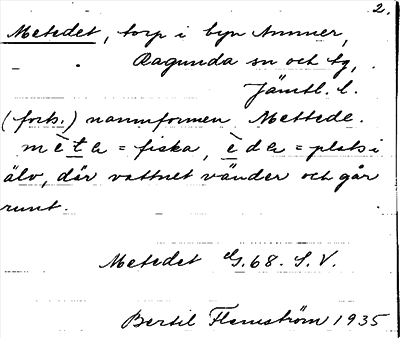 2.
Metedet, torp i byn Ammer,
Ragunda sn och tg,
Jämtl. l.
(forts.) namnformen Mettede.
mèta = fiska, èda = plats i
älv, där vattnet vänder och går
runt.
Metedet G. 68. S. V.
Bertil Flemström 1935